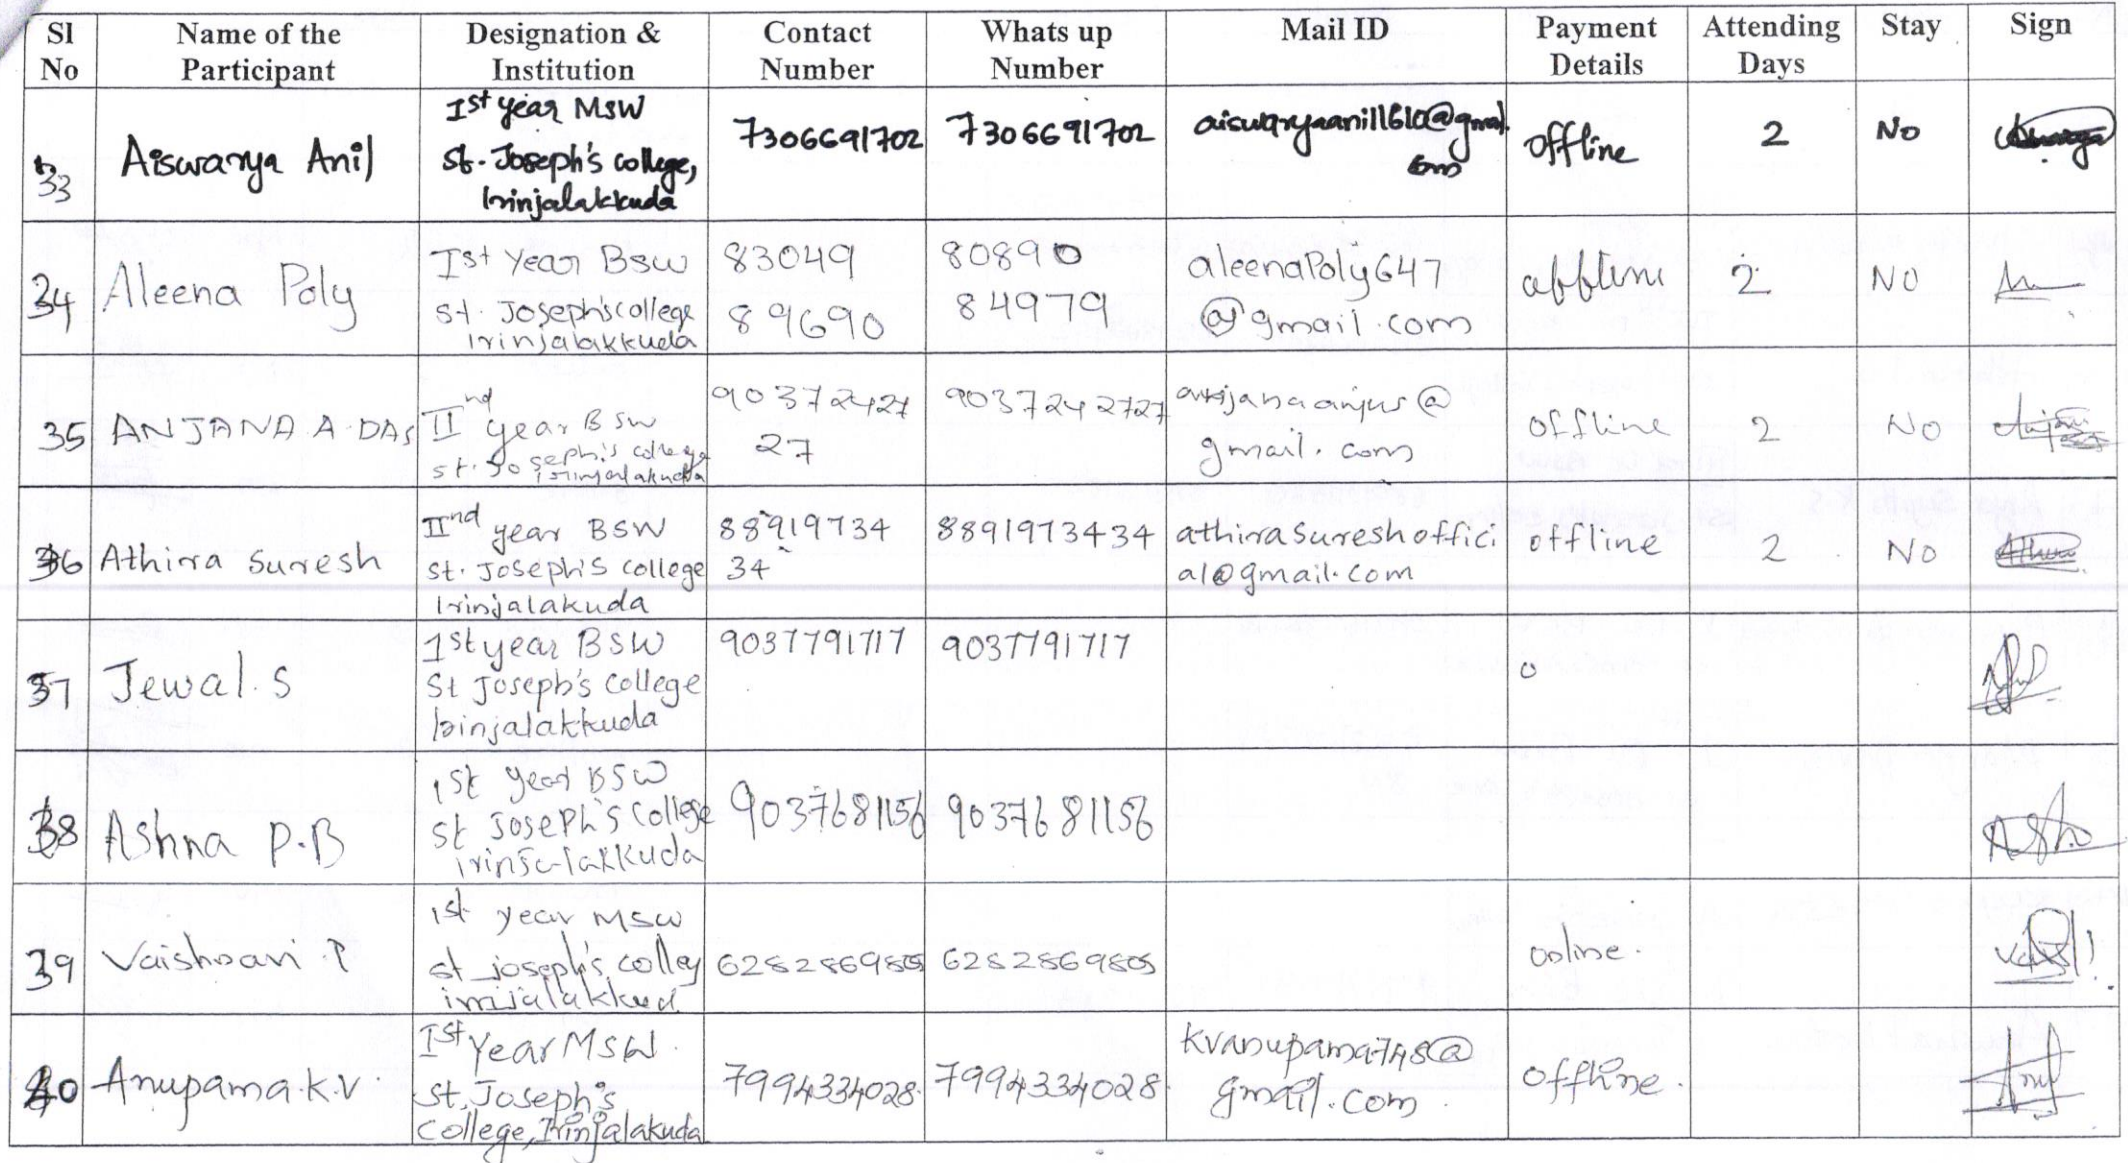 Sl No | Name of the Participant | Designation & Institution | Contact Number | Whats up Number | Mail ID | Payment Details | Attending Days | Stay | Sign
33 | Aiswarya Anil | Ist year MSW St. Joseph's college, Irinjalakkuda | 7306691702 | 7306691702 | offline | 2 | No
34 | Aleena Poly | Ist Year BSW St. Joseph's college Irinjalakkuda | 83049 89690 | 80890 84979 | aleenaPoly647 @gmail.com | offline | 2 | NO
35 | ANJANA A DAS | IInd year BSW st. Joseph's college | 90372427 27 | 9037242727 | gmail.com | offline | 2 | No
36 | Athira Suresh | IInd year BSW St. Joseph's college Irinjalakuda | 88919734 34 | 8891973434 | athirasureshoffici al@gmail.com | offline | 2 | No
37 | Jewal.S | 1st year BSW St Joseph's College Irinjalakkuda | 9037791717 | 9037791717 | o
38 | Ashna P.B | 1st year BSW St Joseph's College Irinjalakkuda | 9037681156 | 9037681156
39 | Vaishnavi P | 1st year MSW st joseph's | online.
40 | Anupama.K.V | Ist Year MSW. St. Joseph's College, Irinjalakuda | 7994334028. | 7994334028. | kvanupama748@ gmail.com. | offline.